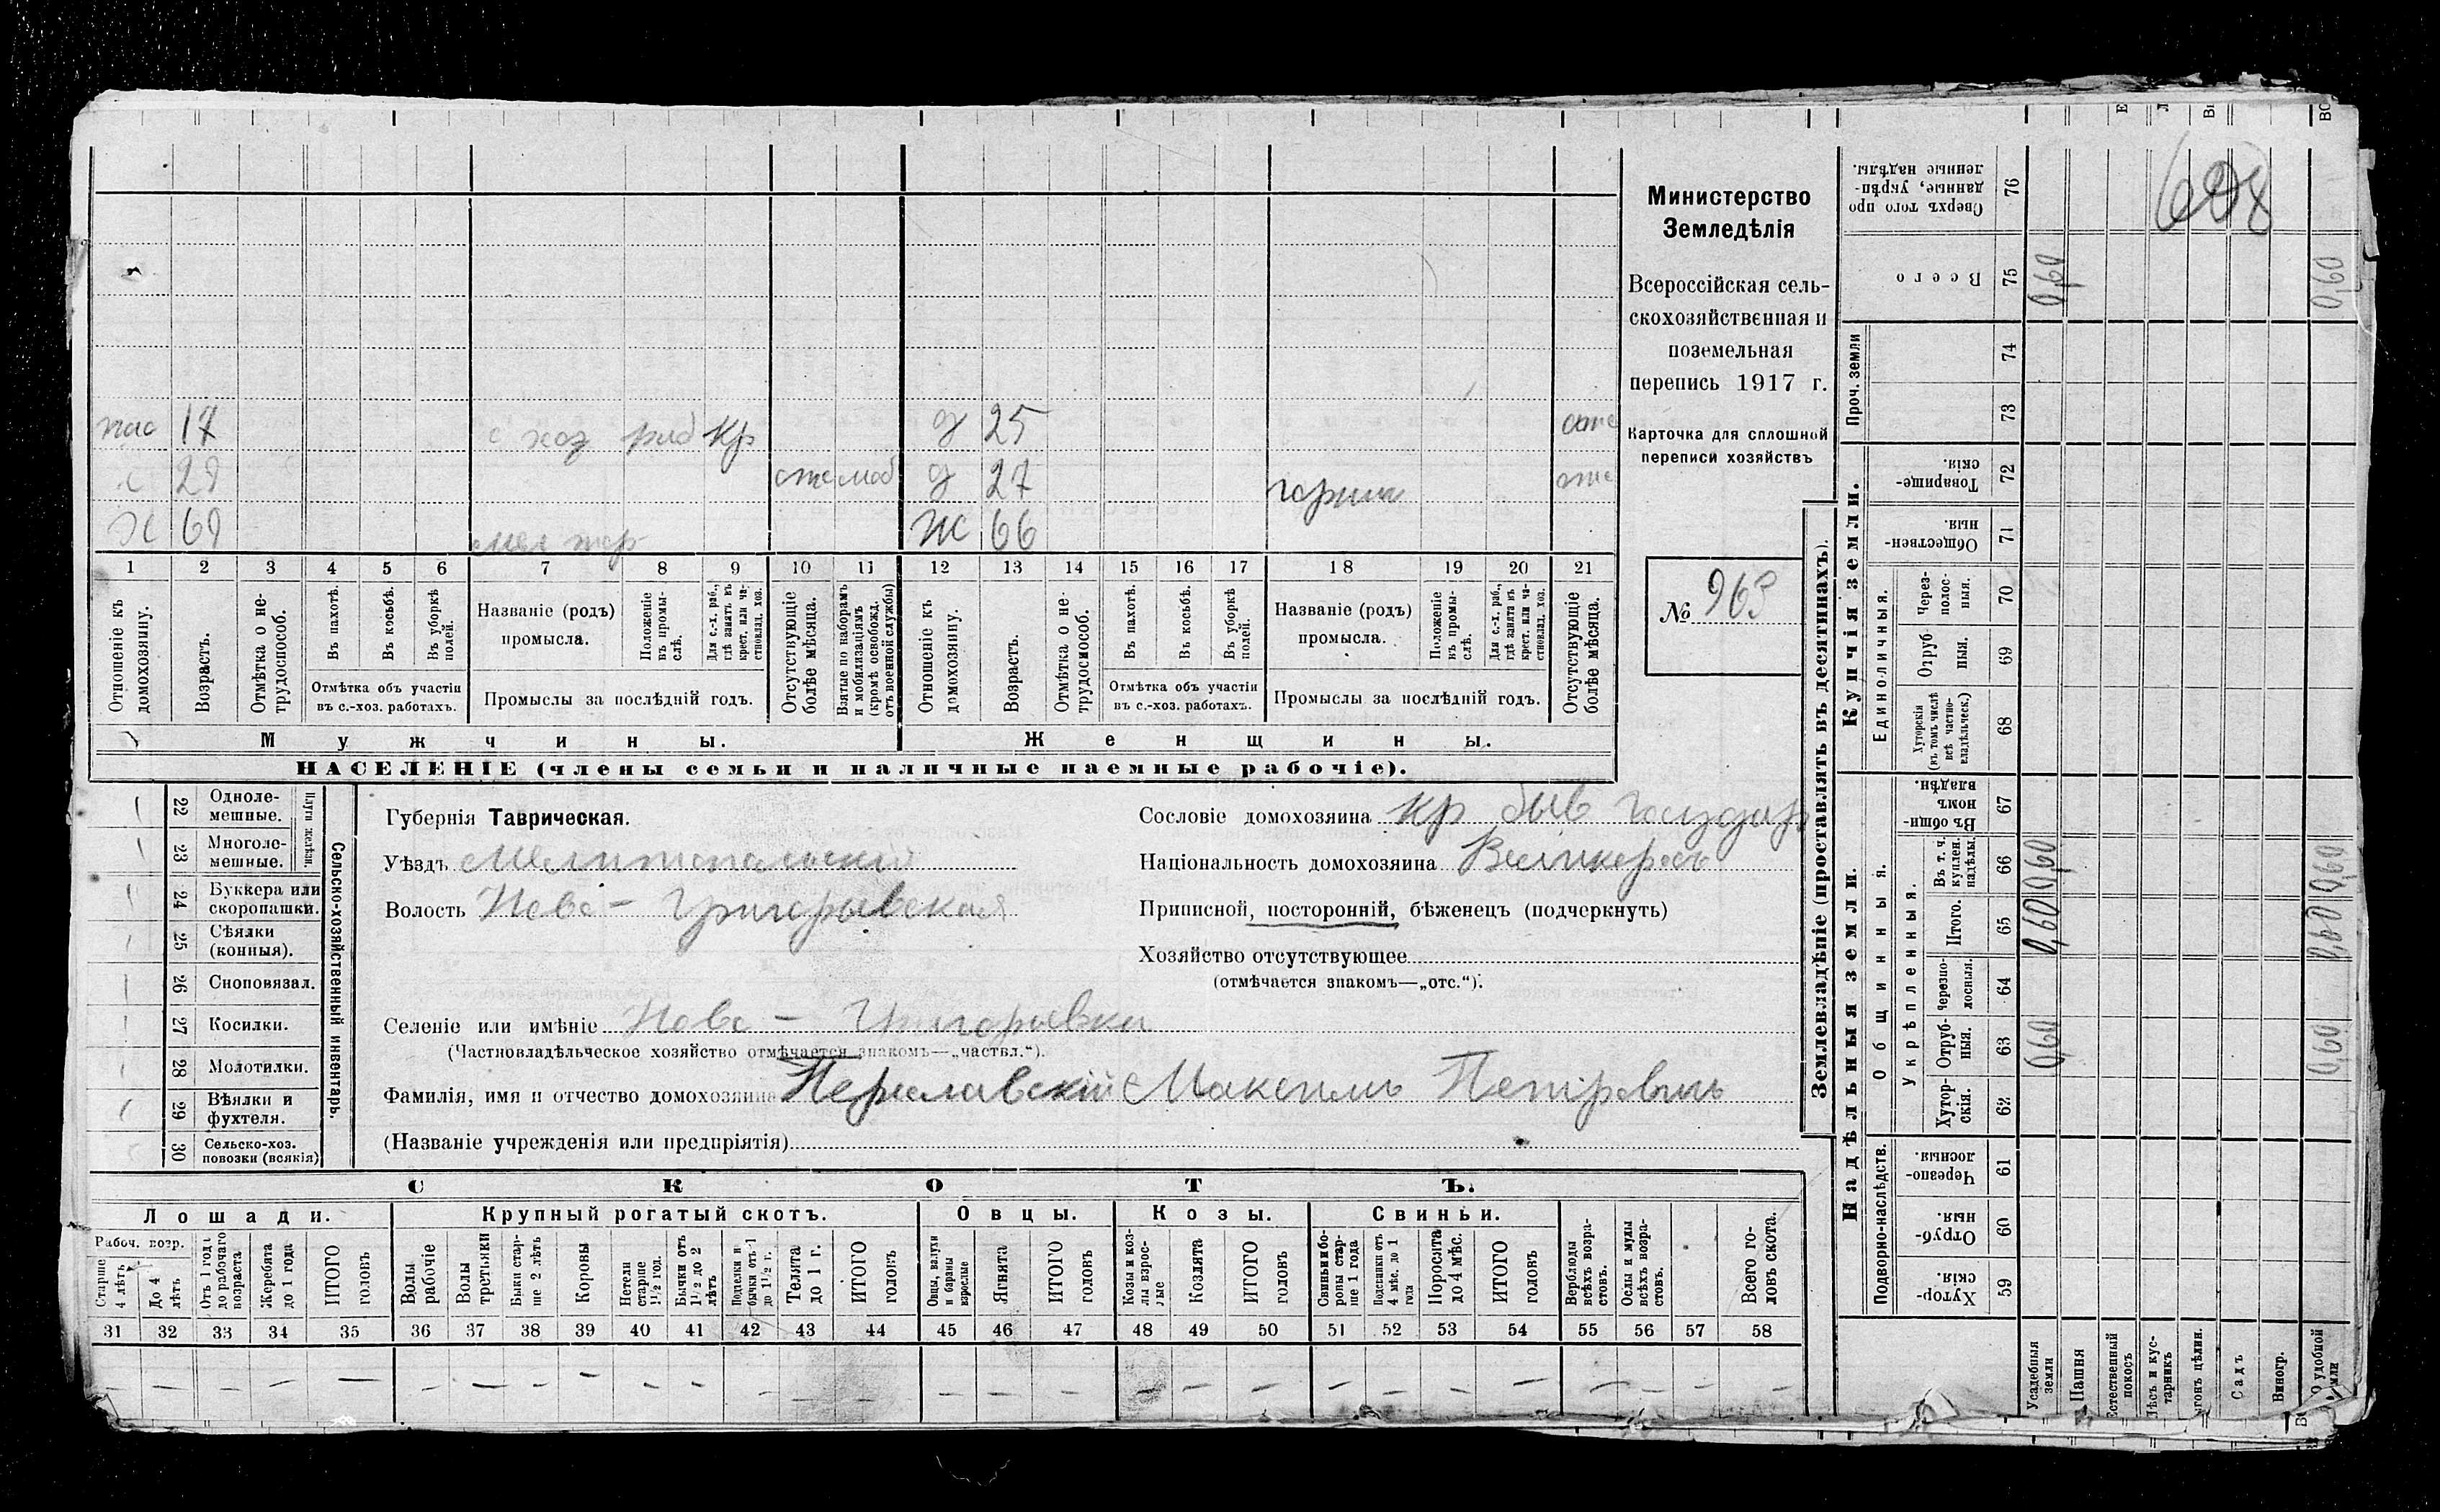 Министерство
Земледѣлія
Всероссійская сель-
скохозяйственная и
поземельная
перепись 1917 г.
Карточка для сплошной
переписи хозяйствъ
№ 963
608
17 хоз раб Кр д 25
с 29 отс моб д 27 горнич отс
Ж 69 Ж 66
1 2 3 4 5 6 7 8 9 10 11 12 13 14 15 16 17 18 19 20 21
Отношеніе къ домохозяину.
Возрастъ.
Отмѣтка о не-трудоспособ.
Въ пахотѣ.
Въ косьбѣ.
Въ уборкѣ полей.
Отмѣтка объ участіи
въ с.-хоз. работахъ.
Названіе (родъ)
промысла.
Положеніе въ промы-слѣ.
Для с.-х. раб., гдѣ занятъ въ крест. или ча-стновлад. хоз.
Промыслы за послѣдній годъ.
Отсутствующіе болѣе мѣсяца.
Взятые по наборамъ и мобилизаціямъ (кромѣ освобожд. отъ военной службы)
Отношеніе къ домохозяину.
Возрастъ.
Отмѣтка о не-трудоспособ.
Въ пахотѣ.
Въ косьбѣ.
Въ уборкѣ полей.
Отмѣтка объ участіи
въ с.-хоз. работахъ.
Названіе (родъ)
промысла.
Положеніе въ промы-слѣ.
Для с.-х. раб., гдѣ занята въ крест. или ча-стновлад. хоз.
Промыслы за послѣдній годъ.
Отсутствующіе болѣе мѣсяца.
Мужчины.
Женщины.
НАСЕЛЕНІЕ (члены семьи и наличные наемные рабочіе).
Сельско-хозяйственный инвентарь.
Плуги желѣзн.
22 Одноле-мешные.
23 Многоле-мешные.
24 Буккера или скоропашки.
25 Сѣялки (конныя).
26 Сноповязал.
27 Косилки.
28 Молотилки.
29 Вѣялки и фухтеля.
30 Сельско-хоз. повозки (всякія)
Губернія Таврическая.
Уѣздъ Мелитопольскій
Волость Ново-Григорьевская
Селеніе или имѣніе Ново-Григорьевка
(Частновладѣльческое хозяйство отмѣчается знакомъ—„частвл.“).
Фамилія, имя и отчество домохозяина Переславскій Максимъ Петровичъ
(Названіе учрежденія или предпріятія)
Сословіе домохозяина кр быв Государ
Національность домохозяина Великороссъ
Приписной, посторонній, бѣженецъ (подчеркнуть)
Хозяйство отсутствующее
(отмѣчается знакомъ—„отс.“).
СКОТЪ.
Лошади.
Крупный рогатый скотъ.
Овцы.
Козы.
Свиньи.
Рабоч. возр.
Старше 4 лѣтъ
До 4 лѣтъ
Отъ 1 года до рабочаго возраста
Жеребята до 1 года
ИТОГО головъ
Волы рабочіе
Волы третьяки
Быки стар-ше 2 лѣтъ
Коровы
Нетели старше 1½ год.
Бычки отъ 1½ до 2 лѣтъ
Подтелки и бычки отъ 1 до 1½ г.
Телята до 1 г.
ИТОГО головъ
Овцы, валухи и бараны взрослые
Ягнята
ИТОГО головъ
Козы и коз-лы взрос-лые
Козлята
ИТОГО головъ
Свиньи и бо-ровы стар-ше 1 года
Подсвинки отъ 4 мѣс. до 1 года
Поросята до 4 мѣс.
ИТОГО головъ
Верблюды всѣхъ возра-стовъ.
Ослы и мулы всѣхъ возра-стовъ.
Всего го-ловъ скота.
31 32 33 34 35 36 37 38 39 40 41 42 43 44 45 46 47 48 49 50 51 52 53 54 55 56 57 58
Землевладѣніе (проставлять въ десятинахъ).
Надѣльныя земли.
Купчія земли.
Проч. земли
Сверхъ того про-данные, укрѣп-ленные надѣлы. 76
Всего 75 0,60 0,60
74
73
Товарище-скія. 72
Обществен-ныя. 71
Единоличныя.
Через-полос-ныя. 70
Отруб-ныя. 69
Хуторскія (въ томъ числѣ всѣ частно-владѣльческ.) 68
Общинныя.
Въ общи-номъ владѣн. 67
Укрѣпленныя.
Въ т. ч. куплен. надѣлы. 66 0,60 0,60
Итого. 65 0,60 0,60
Черезпо-лосныя. 64
Отруб-ныя. 63 0,60 0,60
Хутор-скія. 62
Подворно-наслѣдств.
Черезпо-лосныя. 61
Отруб-ныя. 60
Хутор-скія. 59
Усадебныя земли
Пашня
Естественный покосъ
Лѣсъ и кус-тарникъ
Садъ
Виногр.